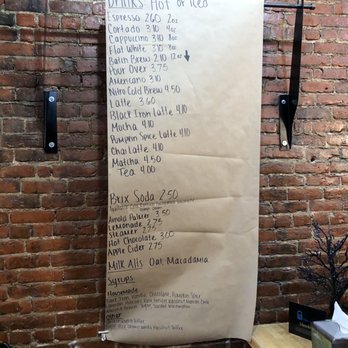 DRINKS Hot or Iced
Espresso 2.60 2oz
Cortado 3.10 4oz
Cappuccino 3.10 8oz
Flat White 3.10 8oz
Batch Brew 3.10 12oz
Pour Over 3.75
Americano 3.10
Nitro Cold Brew 4.10
Latte 3.60
Black Iron Latte 4.10
Mocha 4.10
Pumpkin Spice Latte 4.10
Chai Latte 4.10
Matcha 4.50
Tea 4.00
Brix Soda 2.50
Arnold Palmer 3.50
Lemonade 2.75
Steamer
Hot Chocolate 3.00
Apple Cider 2.75
Milk Alts Oat, Macadamia
Syrups
Housemade
Vanilla, Chocolate, Pumpkin Spice
Other